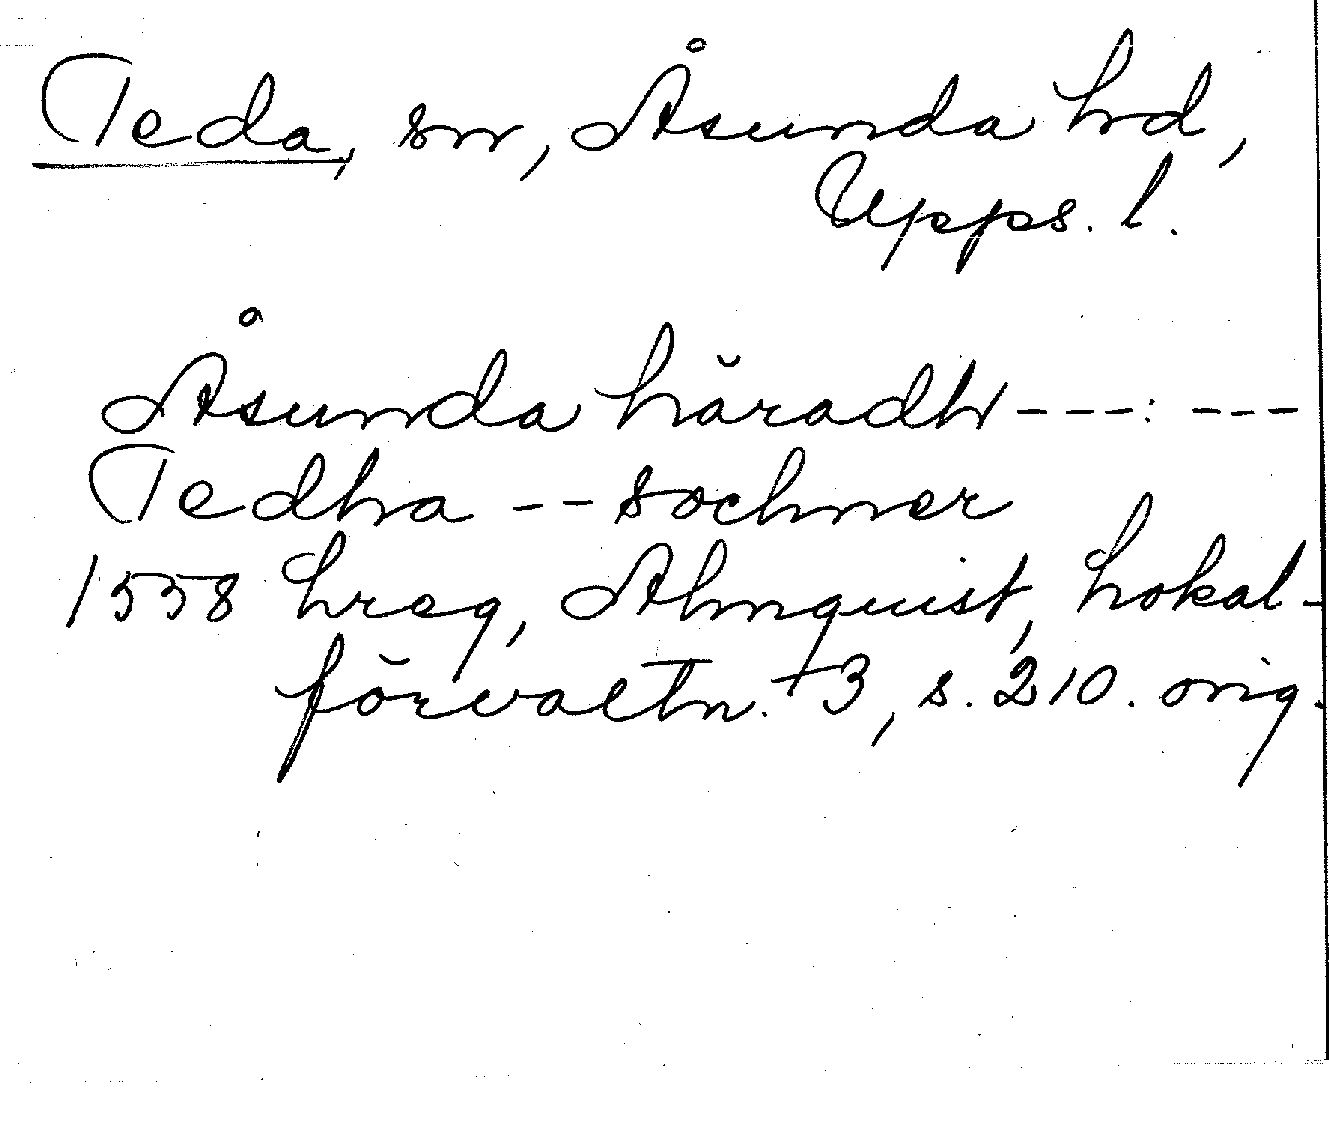 Teda, sn, Åsunda hd,
Upps. l.
Åsunda häradh ---: ---
Tedha -- sochner
1558 hreg, Almquist, Lokal-
förvaltn. +3, s. 210. orig.